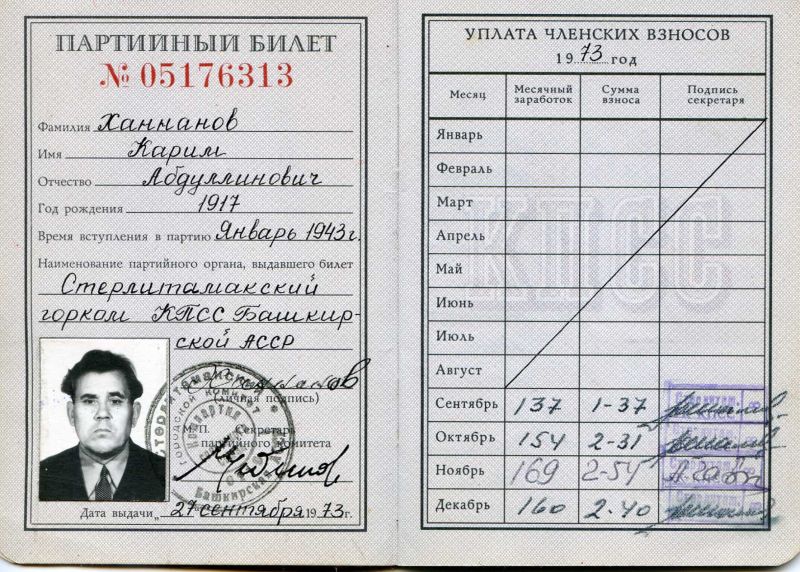 ПАРТИЙНЫЙ БИЛЕТ
№ 05176313
Фамилия Ханнанов
Имя Карим
Отчество Абдуллинович
Год рождения 1917
Время вступления в партию Январь 1943 г.
Наименование партийного органа, выдавшего билет
Стерлитамакский
горком КПСС Башкир-
ской АССР
(Личная подпись)
М. П. Секретарь
партийного комитета
Дата выдачи „27 сентября 1973 г.
УПЛАТА ЧЛЕНСКИХ ВЗНОСОВ
1973 год
Месяц Месячный заработок Сумма взноса Подпись секретаря
Январь
Февраль
Март
Апрель
Май
Июнь
Июль
Август
Сентябрь 137 1-37
Октябрь 154 2-31
Ноябрь 169 2-54
Декабрь 160 2-40
КПСС